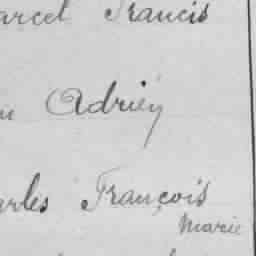 arcel Francis
u Adrien
arles François
Marie